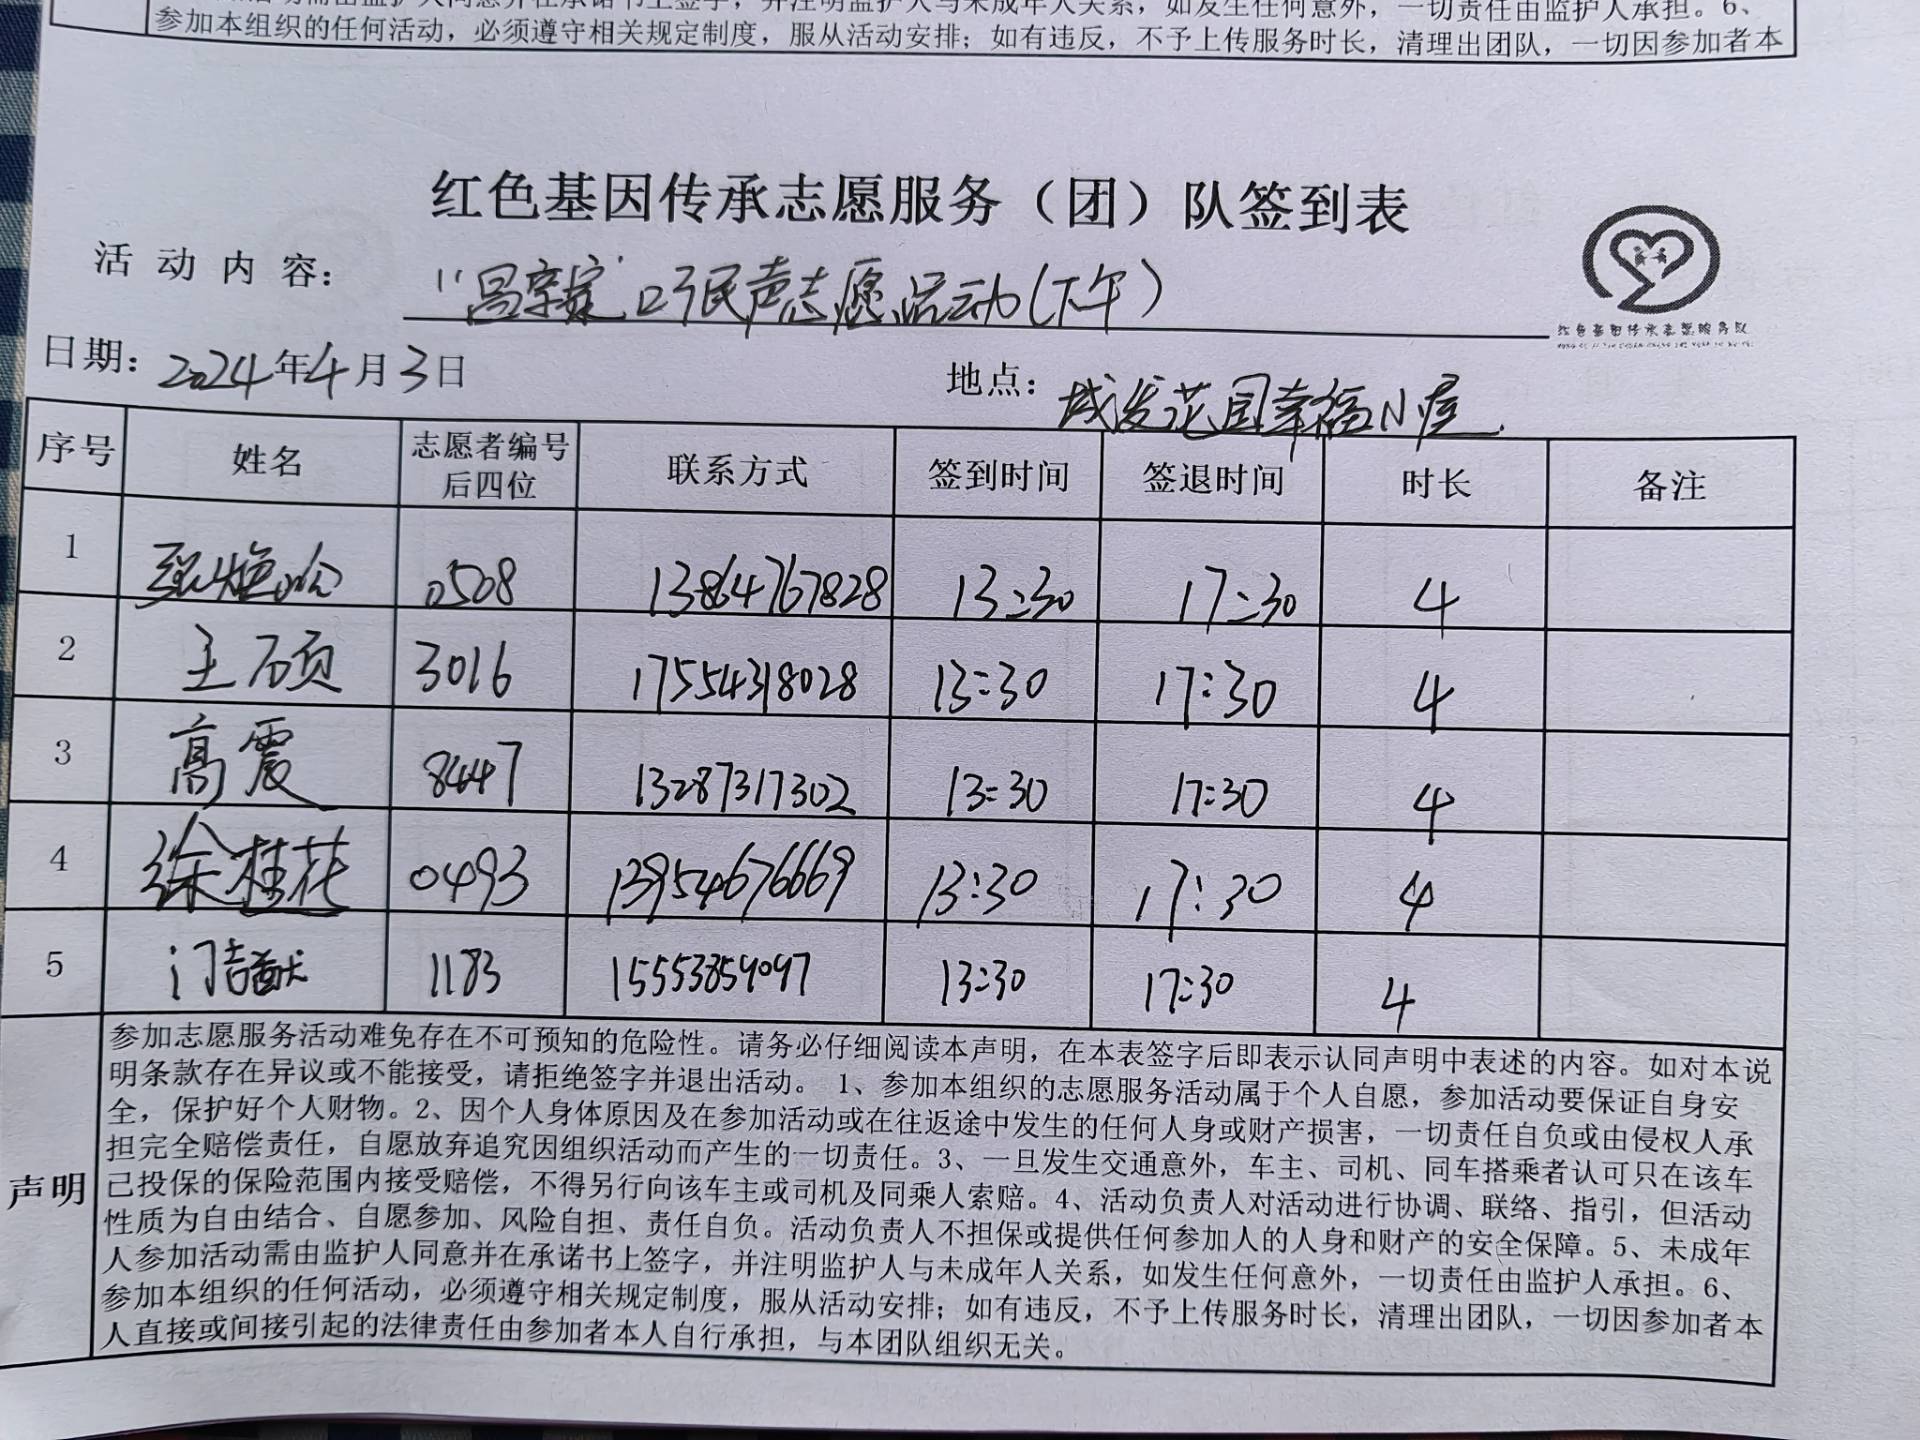 活动需由监护人同意并在承诺书上签字，并注明监护人与未成年人关系，如发生任何意外，一切责任由监护人承担。6、
参加本组织的任何活动，必须遵守相关规定制度，服从活动安排；如有违反，不予上传服务时长，清理出团队，一切因参加者本
红色基因传承志愿服务（团）队签到表
活动内容： 民声志愿活动(下午)
红色基因传承志愿服务队
日期：2024年4月3日 地点：城发花园幸福小屋
序号 姓名 志愿者编号后四位 联系方式 签到时间 签退时间 时长 备注
1 0508 13864767828 13:30 17:30 4
2 王硕 3016 17554318028 13:30 17:30 4
3 高震 8447 13287317302 13:30 17:30 4
4 徐桂花 0493 13954676669 13:30 17:30 4
5 1183 15553859097 13:30 17:30 4
声明
参加志愿服务活动难免存在不可预知的危险性。请务必仔细阅读本声明，在本表签字后即表示认同声明中表述的内容。如对本说
明条款存在异议或不能接受，请拒绝签字并退出活动。 1、参加本组织的志愿服务活动属于个人自愿，参加活动要保证自身安
全，保护好个人财物。2、因个人身体原因及在参加活动或在往返途中发生的任何人身或财产损害，一切责任自负或由侵权人承
担完全赔偿责任，自愿放弃追究因组织活动而产生的一切责任。3、一旦发生交通意外，车主、司机、同车搭乘者认可只在该车
已投保的保险范围内接受赔偿，不得另行向该车主或司机及同乘人索赔。4、活动负责人对活动进行协调、联络、指引，但活动
性质为自由结合、自愿参加、风险自担、责任自负。活动负责人不担保或提供任何参加人的人身和财产的安全保障。5、未成年
人参加活动需由监护人同意并在承诺书上签字，并注明监护人与未成年人关系，如发生任何意外，一切责任由监护人承担。6、
参加本组织的任何活动，必须遵守相关规定制度，服从活动安排；如有违反，不予上传服务时长，清理出团队，一切因参加者本
人直接或间接引起的法律责任由参加者本人自行承担，与本团队组织无关。